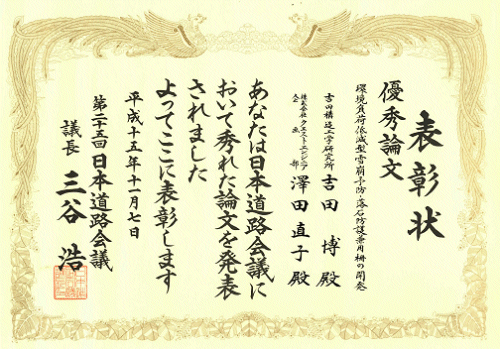 表彰状
優秀論文
環境負荷低減型雪崩予防・落石防護兼用柵の開発
吉田構造工学研究所 吉田 博 殿
株式会社クエストエンジニア
企画部 澤田直子殿
あなたは日本道路会議に
おいて秀れた論文を発表
されました
よってここに表彰します
平成十五年十一月七日
第二十五回日本道路会議
議長 三谷 浩